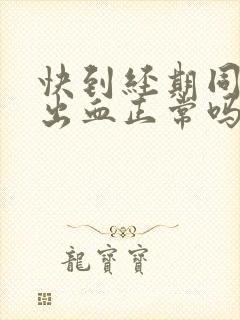 快到经期同
出血正常吗
龍寶寶